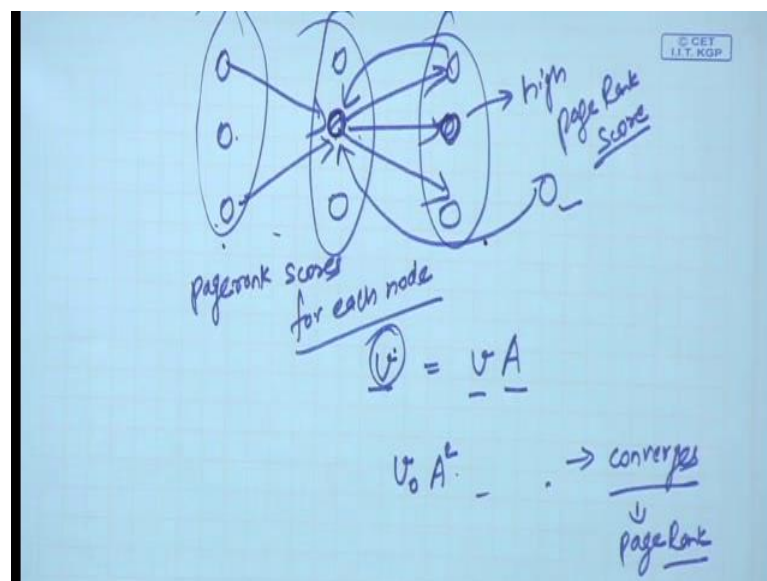 © CET
I.I.T. KGP
high
pageRank
score
pagerank scores
for each node
v = v A
v₀ A² → converges
pageRank